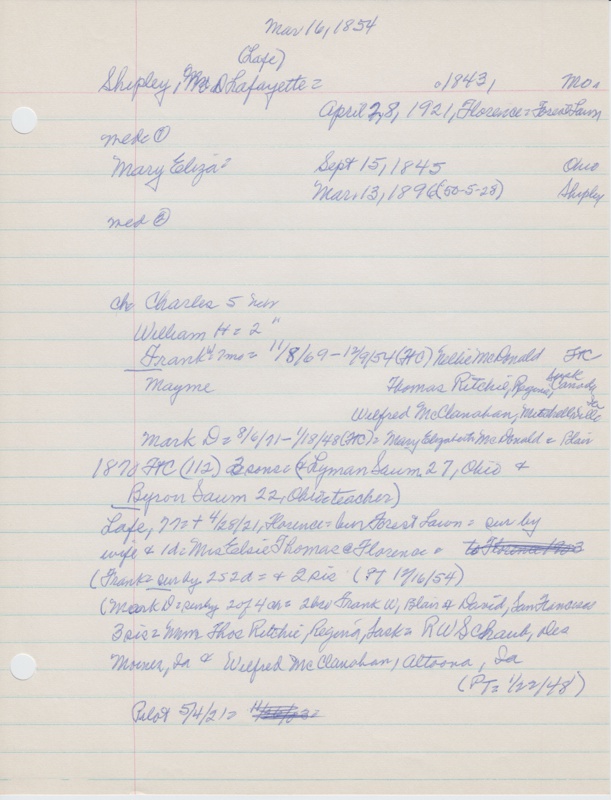 Mar 16, 1854
(Lafe)
Shipley, Mc D Lafayette = 1843, Mo.
April 28, 1921, Florence = Forest Lawn
med ①
Mary Eliza = Sept 15, 1845 Ohio
Mar. 13, 1896 (50-5-28) Shipley
med ②
ch Charles 5
William H = 2 "
Frank W 7mo = 11/8/69 - 12/9/54 (FC) Nellie McDonald FC
Mayme Thomas Ritchie, Regina, Sask Canada
Wilfred McClanahan, Mitchellville Ia
Mark D = 8/6/71 - 1/18/48 (FC) = Mary Elizabeth McDonald = Blair
1870 FC (112) 3 sons = (& Lyman Saum 27, Ohio &
Byron Saum 22, Ohio = teacher)
Lafe, 77 = + 4/28/21, Florence = bur Forest Lawn = sur by
wife & 1d = Mrs Elsie Thomas @ Florence = to Florence 1903
(Frank = sur by 2s 2d = & 2 sis (PT 12/16/54)
(Mark D = sur by 2 of 4 ch = 2 bro Frank W, Blair & David, San Francisco
3 sis = Mmm Thos Ritchie, Regina, Sask = R W Schaub, Des
Moines, Ia & Wilfred McClanahan, Altoona, Ia
(PT = 1/22/48)
Pilot 5/4/21 =